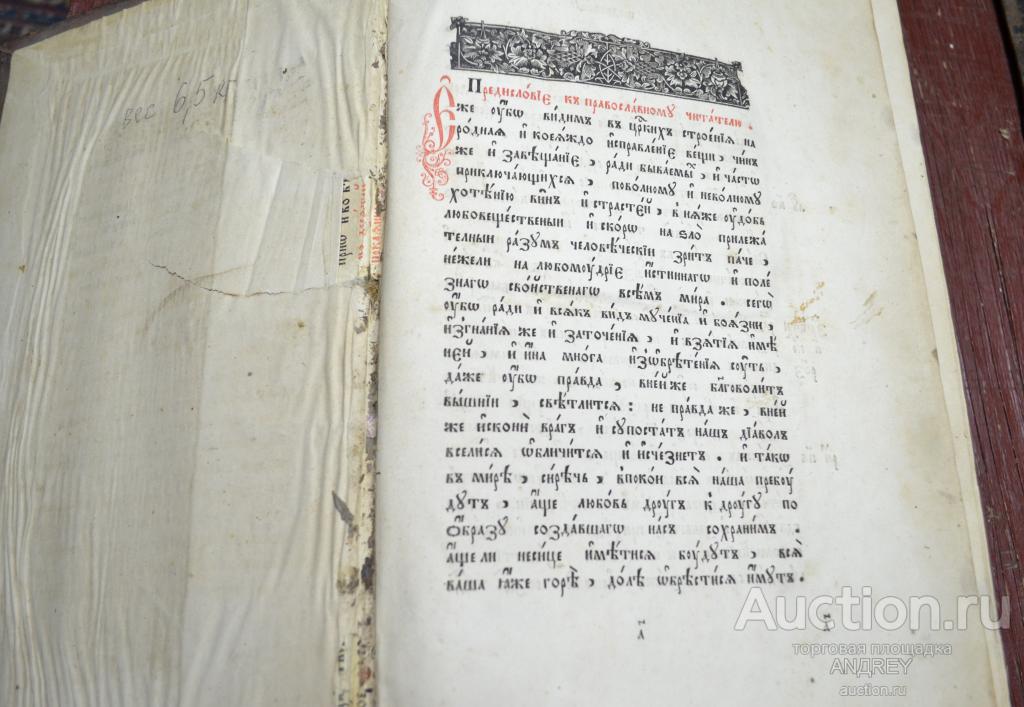 вес 6,5 кг
Предисло́вїе къ правосла́вному чита́телю.
Е́же ᲂу҆́бѡ ви́димъ въ цр҃кихъ строе́нїѧ на
ро́днаѧ и҆ коеѧ́ждо и҆справле́нїе вещи, чи́нъ
же и҆ завѣща́нїе, ра́ди быва́емы, и҆ ча́стѡ
приключа́ющихсѧ, пово́лному и҆ нево́лному
хотѣ́нїю ви́нъ и҆ страсте́й, в ни́ѧже ᲂу҆до́бь
любовещественый и҆ ско́рѡ на ѕло̀ прилежа́
телный ра́зумъ человѣ́ческїи зри́тъ па́че,
не́жели на любомꙋ́дрїе и҆́стиннагѡ и҆ поле́
знагѡ сво́йственагѡ всѣ́мъ ми́ра. сегѡ̀
ᲂу҆́бѡ ра́ди и҆ всѧ́къ ви́дъ мꙋче́нїѧ и҆ боѧ́зни,
и҆згна́нїѧ же и҆ заточе́нїѧ, и҆ взѧ́тїѧ и҆мѣ́
ней, и҆ и҆́на мно́га и҆з̾ѡбрѣте́нїѧ сꙋ́ть,
да́же ᲂу҆́бѡ пра́вда, вне́йже бл҃говоли́тъ
вы́шнїи, свѣ́тлитсѧ: не пра́вда же, вне́й
же и҆скони́ вра́гъ и҆ сꙋпоста́тъ на́шъ дїа́волъ
всели́сѧ ѡ҆бличи́тсѧ и҆ и҆сче́знетъ. и҆ та́кѡ
въ ми́рѣ, си́рѣчь, впоко́и всѧ̀ на́ша пребꙋ́
дꙋтъ, а҆́ще любо́вь дрꙋ́гъ к дрꙋ́гꙋ по
ѻ҆́бразꙋ созда́вшагѡ на́съ сохрани́мъ.
а҆́ще ли неси́це и҆мѣ́тисѧ бꙋ́дꙋтъ, всѧ̀
ва́ша ꙗ҆́же горѣ̀, до́лѣ ѡ҆брѣ́стисѧ и҆́мꙋтъ.
Auction.ru
торговая площадка
ANDREY
auction.ru